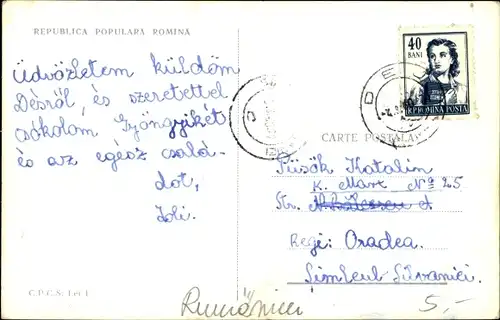 REPUBLICA POPULARA ROMINA
Üdvözletem küldöm
Désről, és szeretettel
csókolom Gyöngyikét
és az egész csalá-
dot,
Joli.
C.P.C.S.
40
BANI
R.P.ROMINA POSTA
DEJ
CARTE POSTALA
Püsök Katalin
K. Marx Nº 25
Str.
Regi: Oradea.
Șimleul-Silvaniei.
Rumänien
5,-